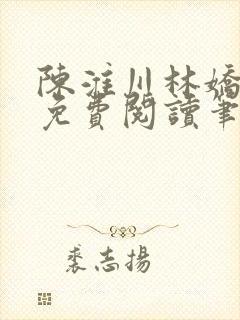 陳淮川林嬌
免費閱讀筆
裘志揚